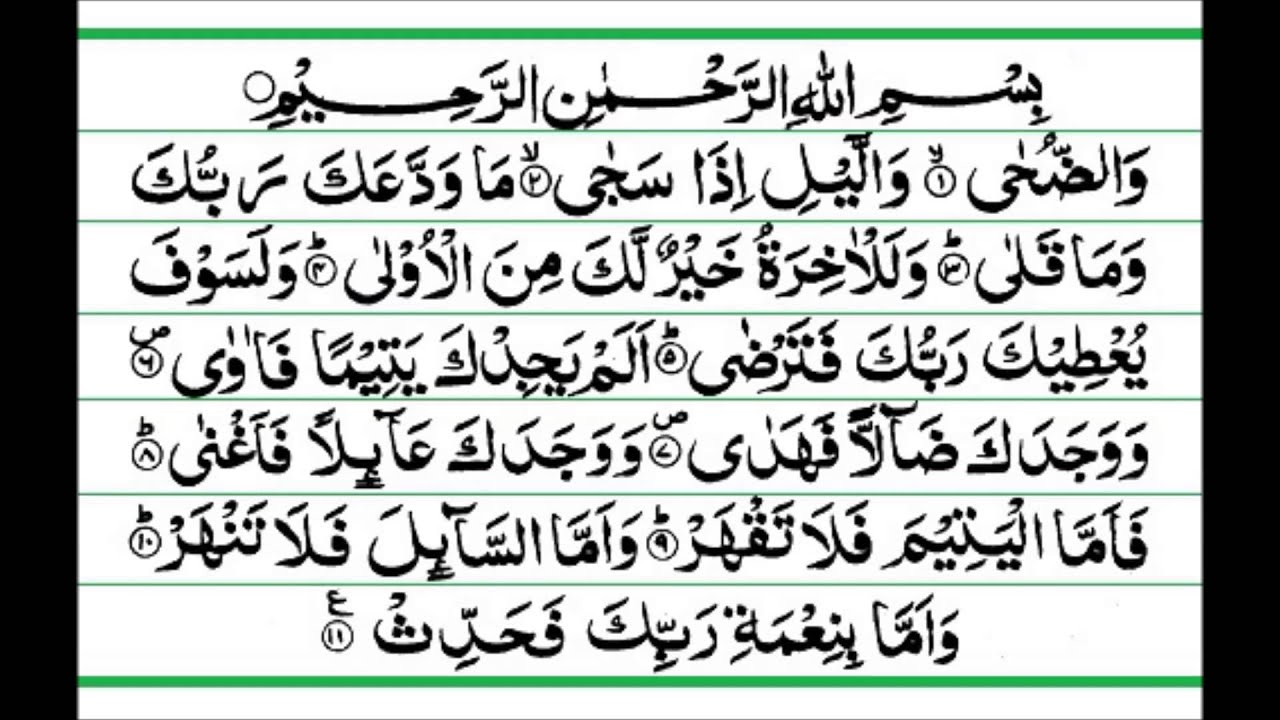 بِسْمِ اللّٰهِ الرَّحْمٰنِ الرَّحِيْمِ ○
وَالضُّحٰى ۙ‏﴿۱﴾ وَالَّيْلِ اِذَا سَجٰى ۙ‏﴿۲﴾ مَا وَدَّعَكَ رَبُّكَ
وَمَا قَلٰى ؕ‏﴿۳﴾ وَلَلْاٰخِرَةُ خَيْرٌ لَّكَ مِنَ الْاُوْلٰى ؕ‏﴿۴﴾ وَلَسَوْفَ
يُعْطِيْكَ رَبُّكَ فَتَرْضٰى ؕ‏﴿۵﴾ اَلَمْ يَجِدْكَ يَتِيْمًا فَاٰوٰى ۪‏﴿۶﴾
وَوَجَدَكَ ضَآلًّا فَهَدٰى ۪‏﴿۷﴾ وَوَجَدَكَ عَآئِلًا فَاَغْنٰى ؕ‏﴿۸﴾
فَاَمَّا الْيَتِيْمَ فَلَا تَقْهَرْ ؕ‏﴿۹﴾ وَاَمَّا السَّآئِلَ فَلَا تَنْهَرْ ؕ‏﴿۱۰﴾
وَاَمَّا بِنِعْمَةِ رَبِّكَ فَحَدِّثْ ﴿۱۱﴾ ع